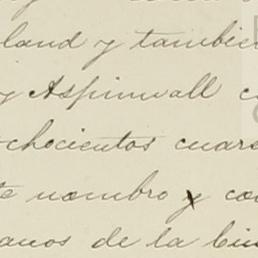 land y tambien
y Aspinwall c
ochocientos cuare
te nombro y con
anos de la Ciu